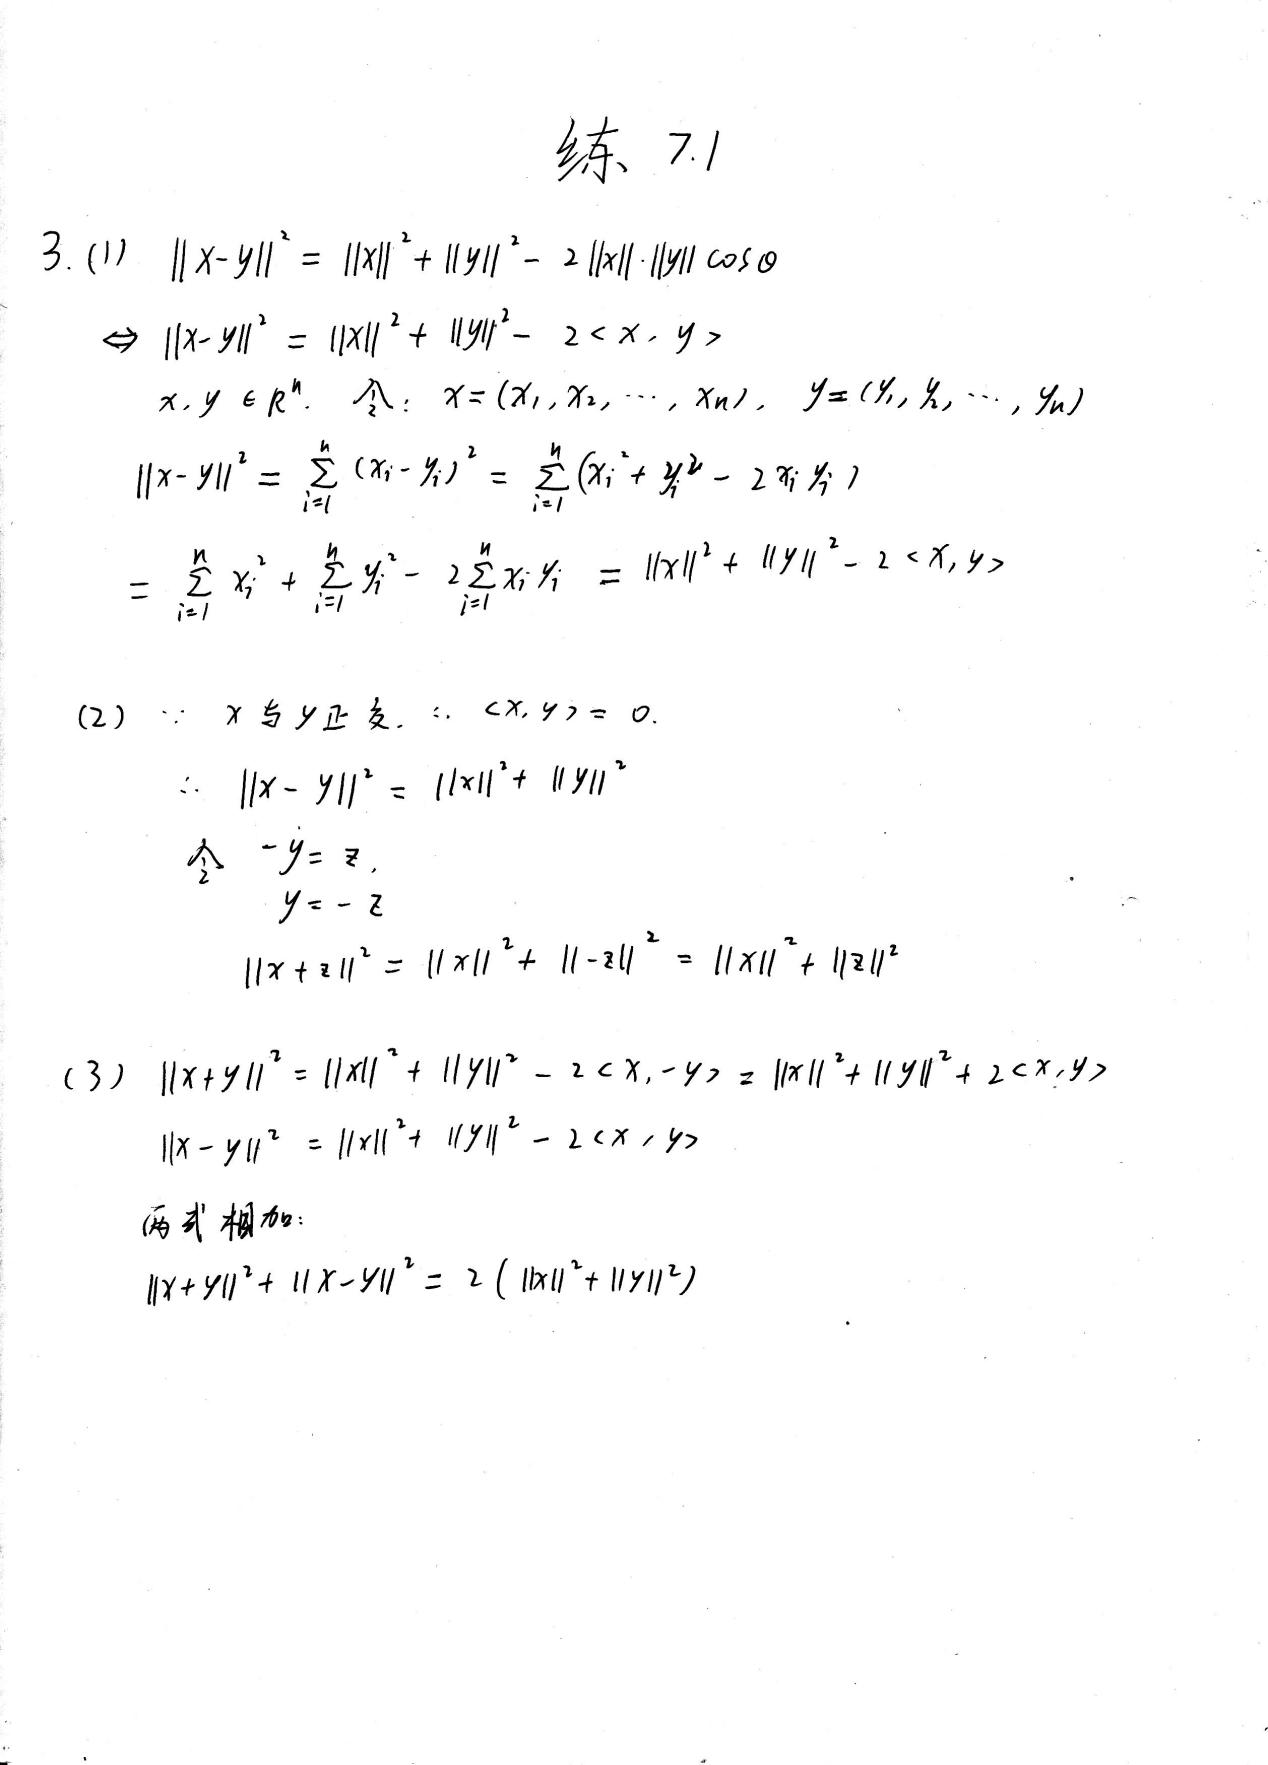 练 7.1
3. (1) ||x-y||² = ||x||² + ||y||² - 2||x||·||y|| cosθ
⇔ ||x-y||² = ||x||² + ||y||² - 2<x, y>
x, y ∈ Rⁿ. 令: x = (x₁, x₂, ⋯, xₙ), y = (y₁, y₂, ⋯, yₙ)
||x-y||² = ∑ᵢ₌₁ⁿ (xᵢ - yᵢ)² = ∑ᵢ₌₁ⁿ (xᵢ² + yᵢ² - 2xᵢyᵢ)
= ∑ᵢ₌₁ⁿ xᵢ² + ∑ᵢ₌₁ⁿ yᵢ² - 2∑ᵢ₌₁ⁿ xᵢyᵢ = ||x||² + ||y||² - 2<x, y>
(2) ∵ x与y正交. ∴ <x, y> = 0.
∴ ||x-y||² = ||x||² + ||y||²
令 -y = z,
y = -z
||x+z||² = ||x||² + ||-z||² = ||x||² + ||z||²
(3) ||x+y||² = ||x||² + ||y||² - 2<x, -y> = ||x||² + ||y||² + 2<x, y>
||x-y||² = ||x||² + ||y||² - 2<x, y>
两式相加:
||x+y||² + ||x-y||² = 2(||x||² + ||y||²)